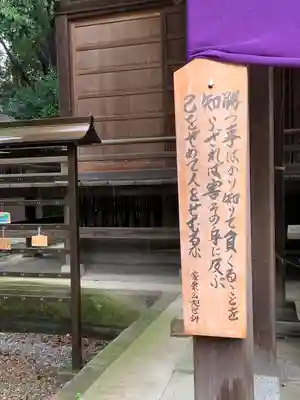 勝つ事ばかり知りて負くることを
知らざれば害その身に及ぶ
己をせめて人をせむるな
家康公遺訓